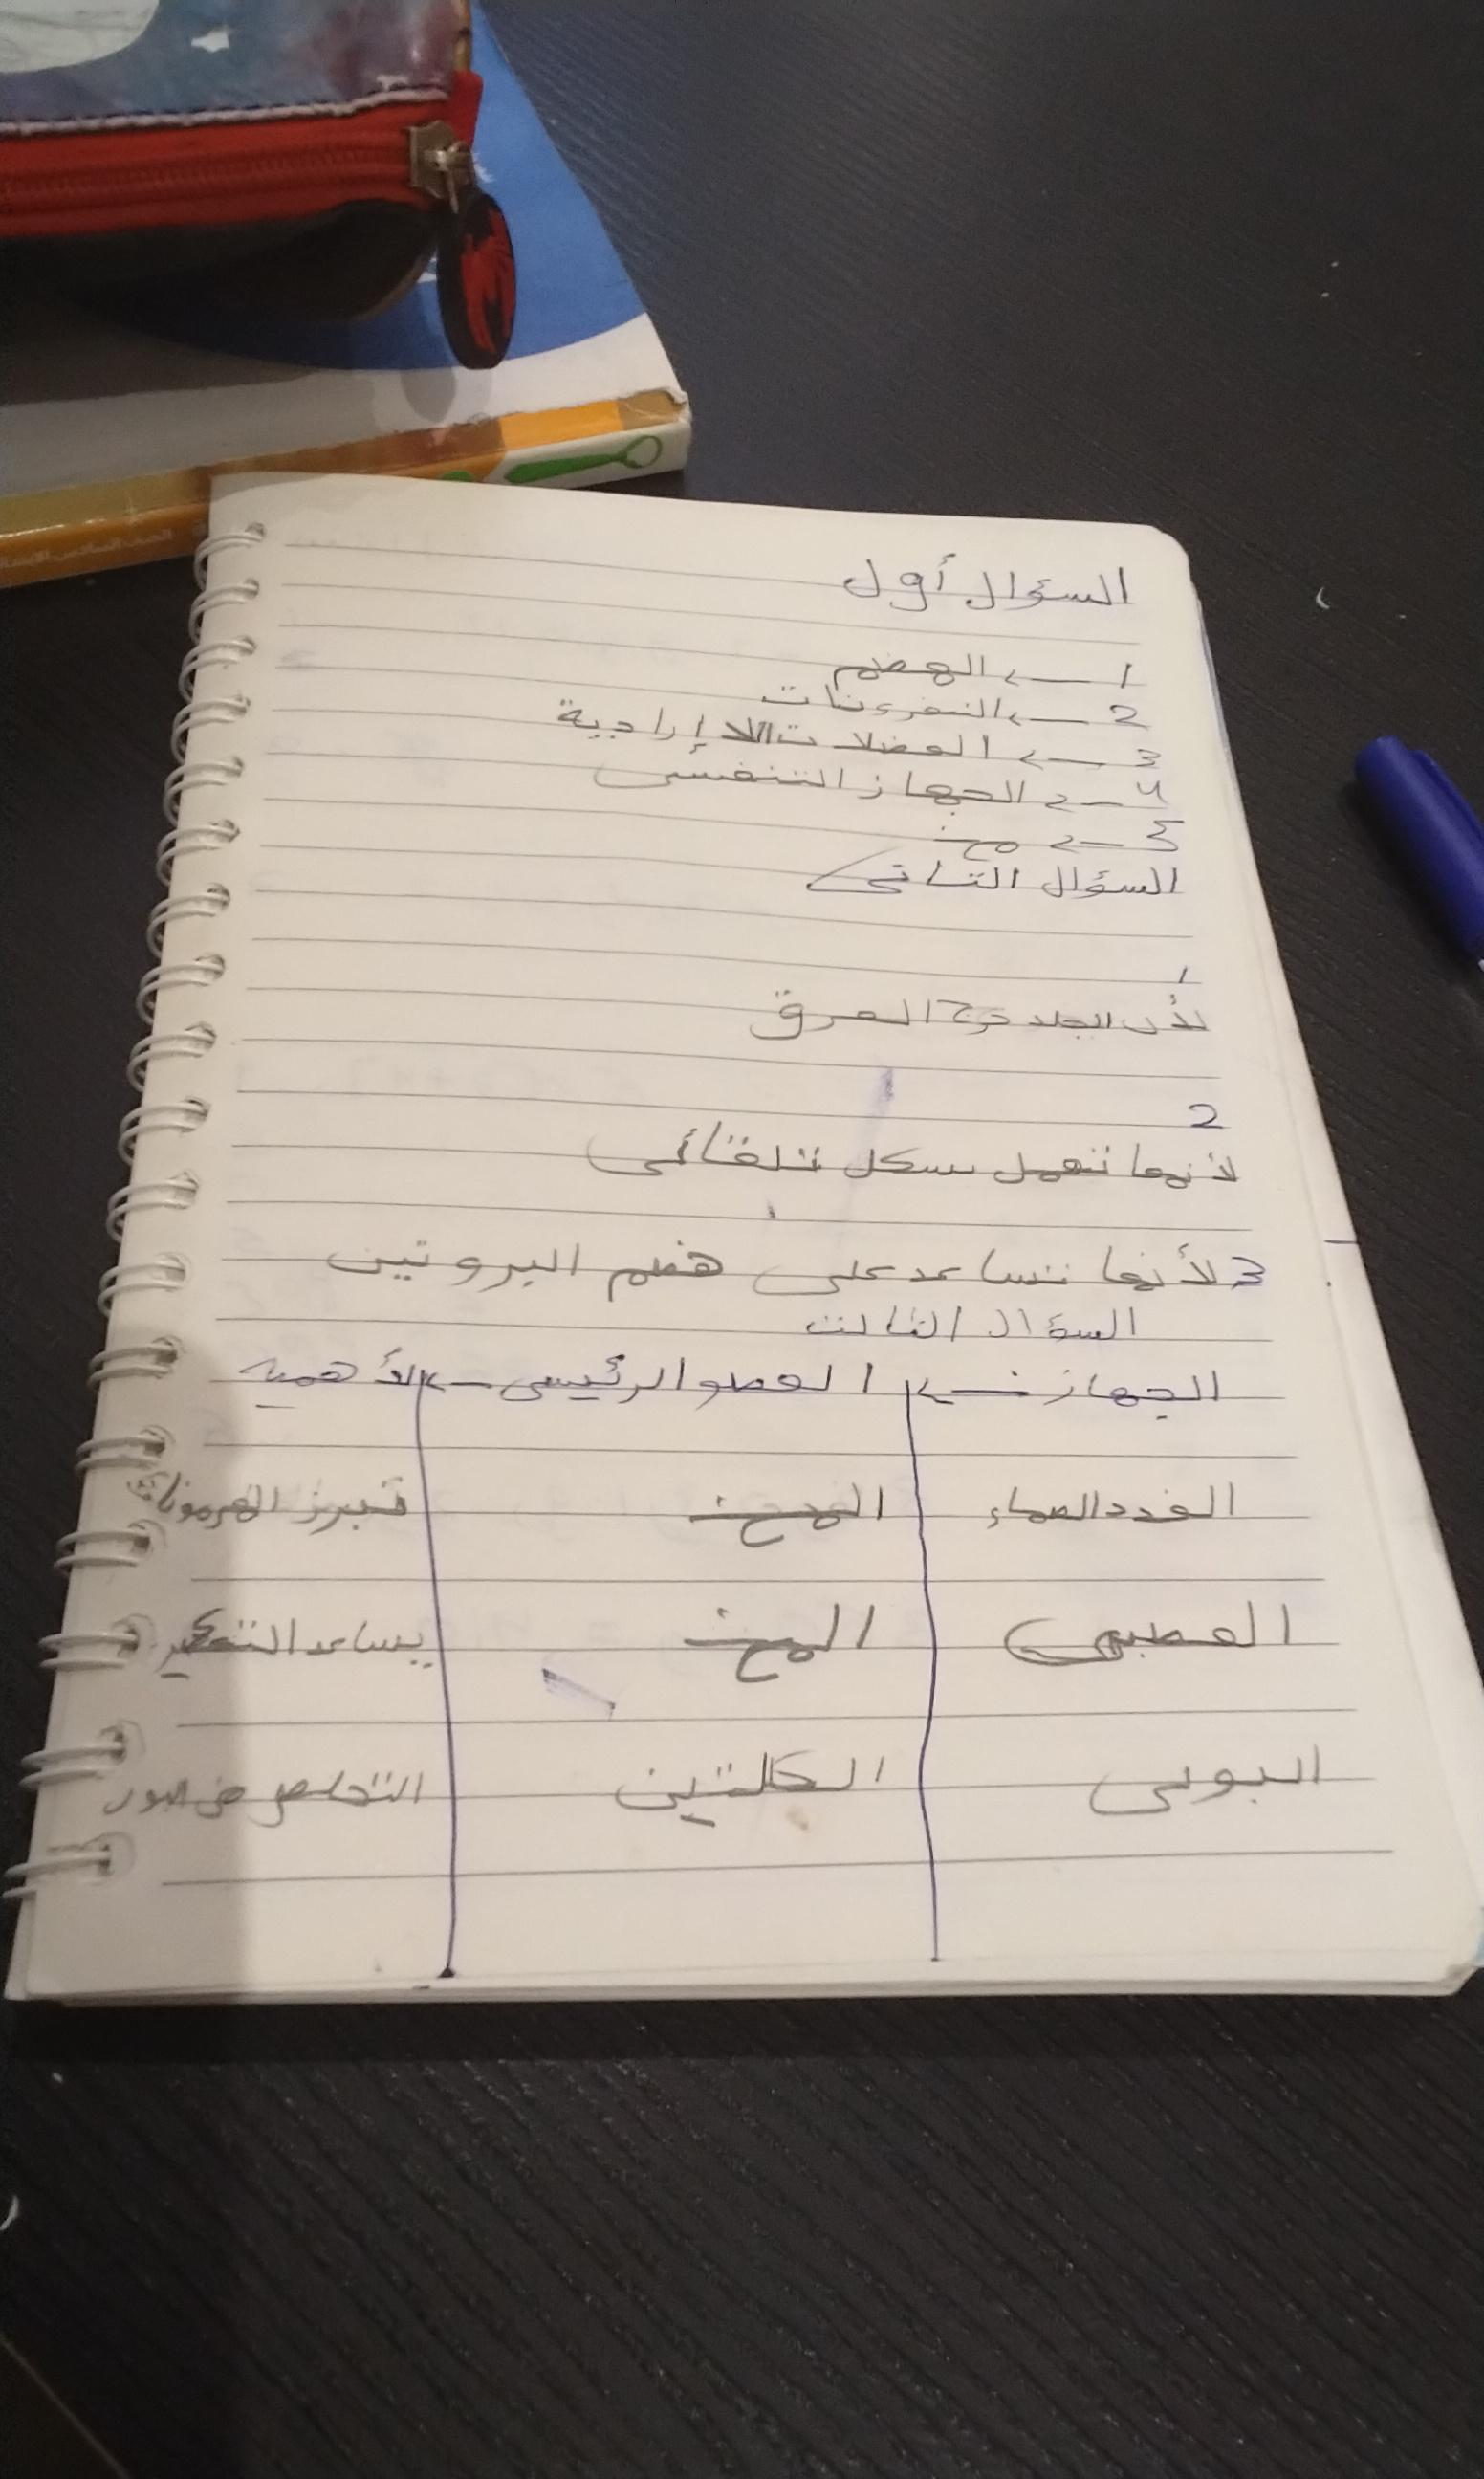 الصف السادس الابتدائي
السؤال أول
1 ← الهضم
2 ← النفرونات
3 ← العضلات اللاإرادية
4 ← الجهاز التنفسى
5 ← مخ
السؤال الثانى
1
لأن الجلد العرق
2
لأنها تعمل بسكل تلقائى
3 لأنها تساعد على هضم البروتين
السؤال الثالث
الجهاز ← العضو الرئيسى ← الأهمية
الغدد الصماء المخ تبرز الهرمونات
العصبى المخ يساعد التفكير
البولى الكلتين التخلص من البول